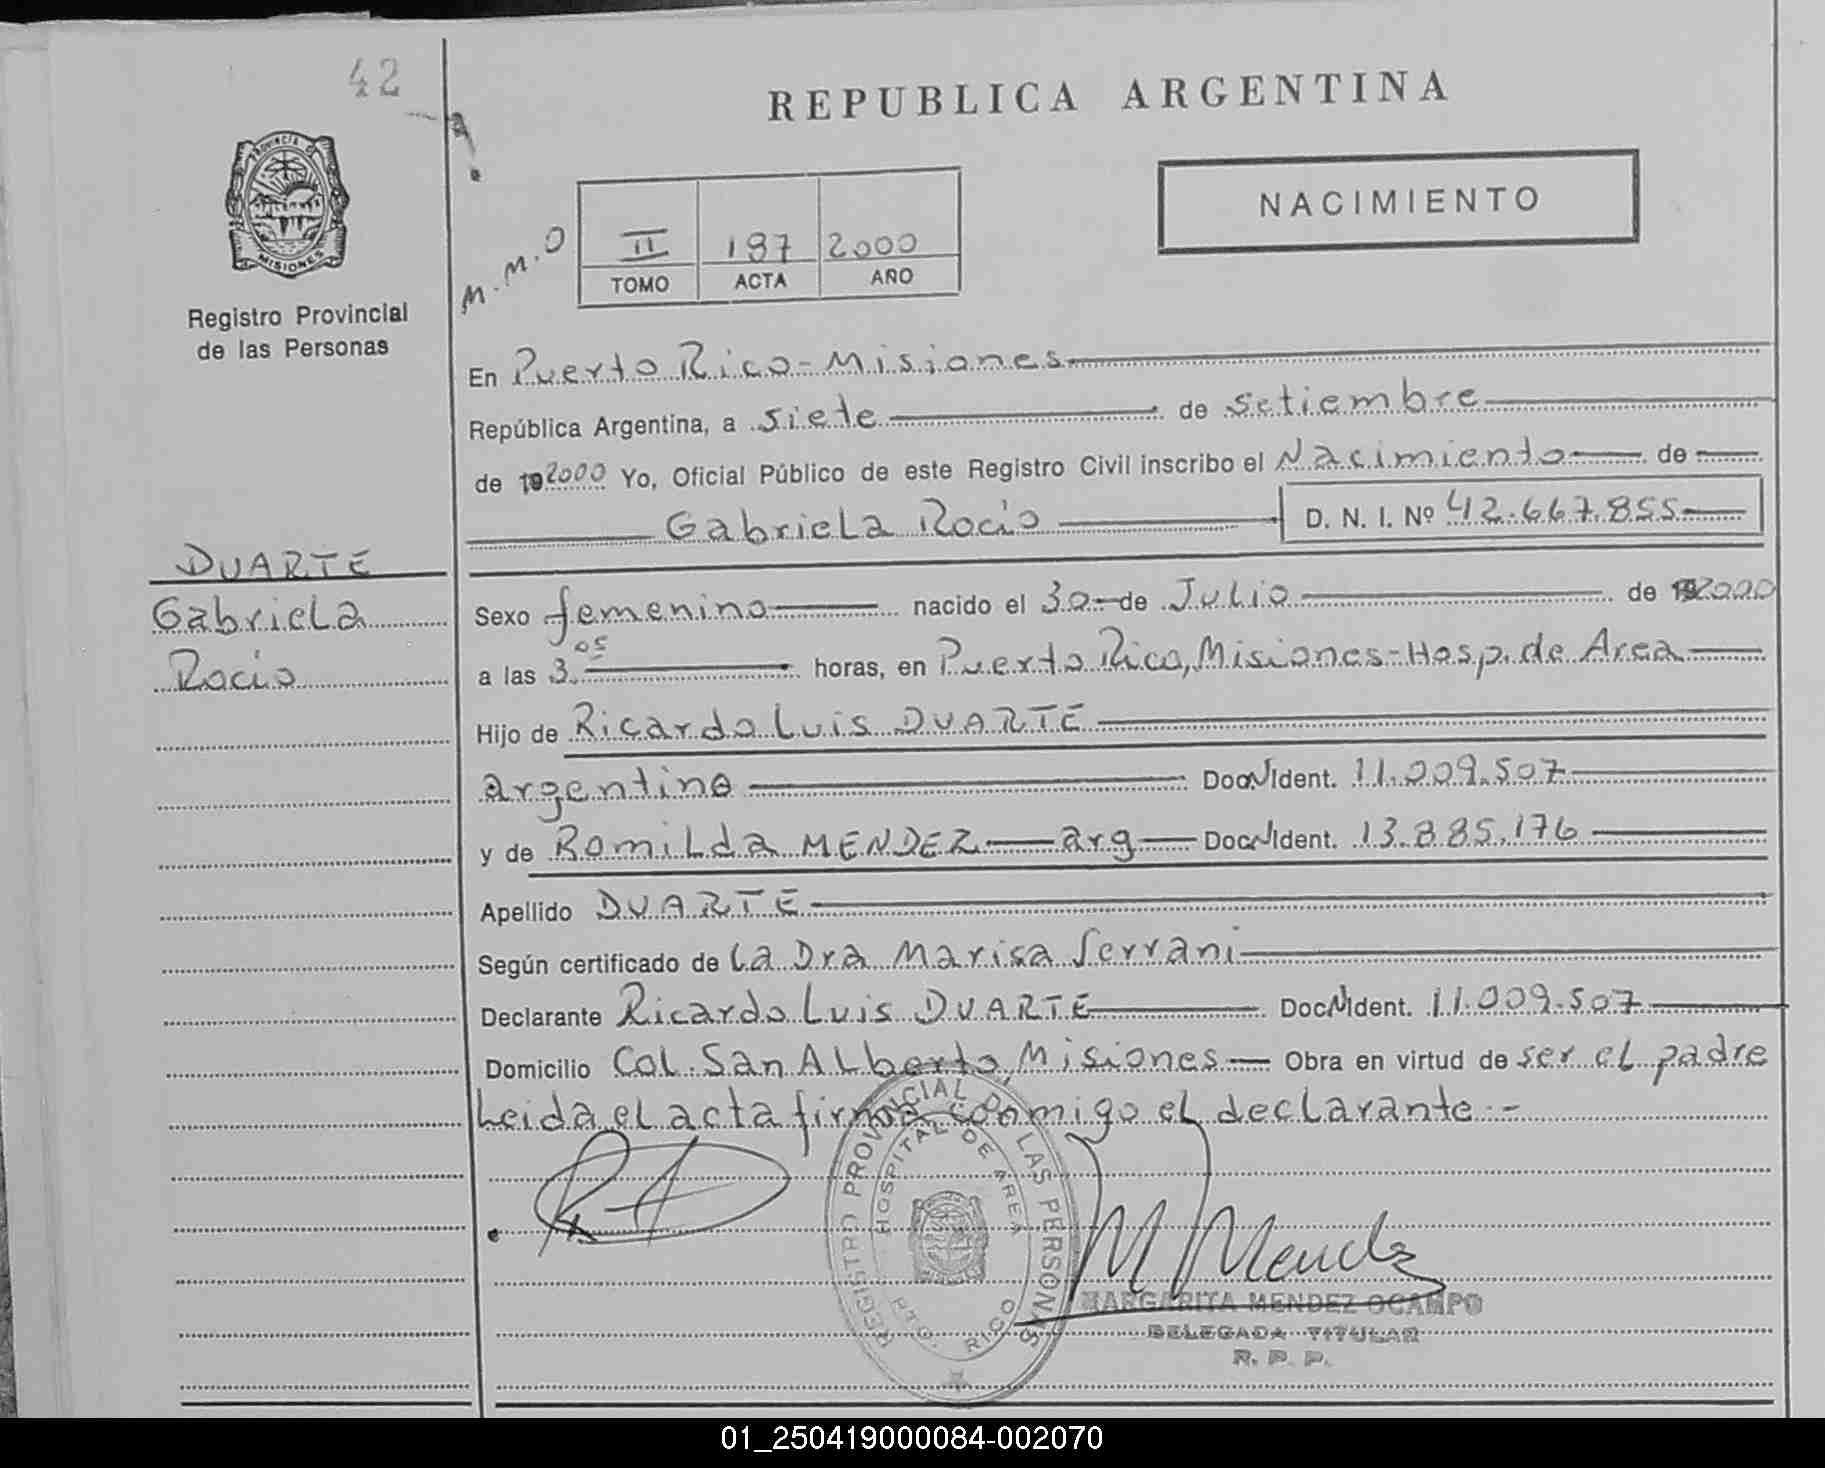 42
REPUBLICA ARGENTINA
NACIMIENTO
PROVINCIA DE
MISIONES
Registro Provincial
de las Personas
M.M.O
II 197 2000
TOMO ACTA AÑO
En Puerto Rico - Misiones
República Argentina, a siete de setiembre
de 192000 Yo, Oficial Público de este Registro Civil inscribo el Nacimiento de
Gabriela Rocío D. N. I. Nº 42.667.855
DUARTE
Gabriela
Rocío
Sexo femenino nacido el 30 de Julio de 192000
a las 3.05 horas, en Puerto Rico, Misiones - Hosp. de Area
Hijo de Ricardo Luis DUARTE
argentino Doc. Ident. 11.009.507
y de Romilda MENDEZ — arg — Doc. Ident. 13.885.176
Apellido DUARTE
Según certificado de La Dra Marisa Serrani
Declarante Ricardo Luis DUARTE Doc. Ident. 11.009.507
Domicilio Col. San Alberto, Misiones — Obra en virtud de ser el padre
Leida el acta firma conmigo el declarante.-
REGISTRO PROVINCIAL DE LAS PERSONAS
HOSPITAL DE AREA
PTO. RICO
M Mendez
MARGARITA MENDEZ OCAMPO
DELEGADA TITULAR
R. P. P.
01_250419000084-002070